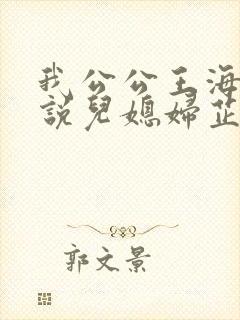 我公公王海
說兒媳婦芷
郭文景